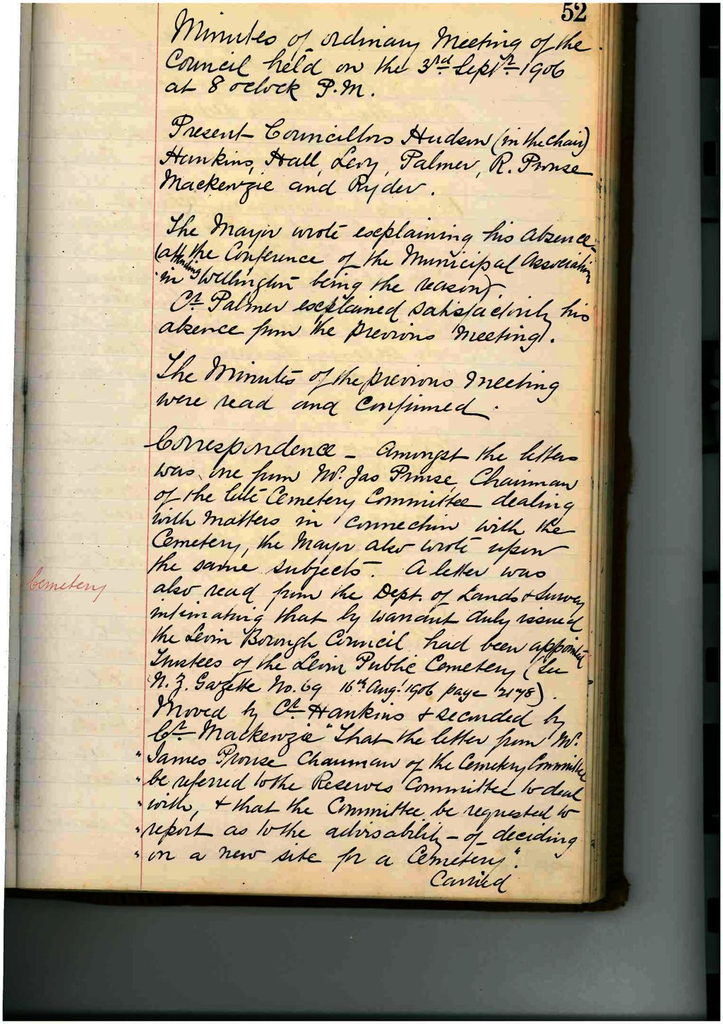 52
Minutes of ordinary Meeting of the
Council held on the 3rd Septr 1906
at 8 oclock P.M.
Present Councillors Hudson (in the chair)
Hankins, Hall, Levy, Palmer, R. Prouse
Mackenzie and Ryder.
The Mayor wrote explaining his absence
(attending the Conference of the Municipal Association
in Wellington being the reason)
Cr Palmer explained satisfactorily his
absence from the previous Meeting.
The Minutes of the previous Meeting
were read and confirmed.
Correspondence - Amongst the letters
was one from Mr. Jas Prouse, Chairman
of the late Cemetery Committee dealing
with matters in connection with the
Cemetery, the Mayor also wrote upon
the same subjects. A letter was
Cemetery
also read from the Dept. of Lands & Survey
intimating that by warrant duly issued
the Levin Borough Council had been appointed
Trustees of the Levin Public Cemetery (See
N.Z. Gazette No. 69 16th Aug. 1906 page 2178).
Moved by Cr Hankins & seconded by
Cr Mackenzie "That the letter from Mr.
"James Prouse Chairman of the Cemetery Committee
"be referred to the Reserves Committee to deal
"with, & that the Committee be requested to
"report as to the advisability of deciding
"on a new site for a Cemetery".
Carried